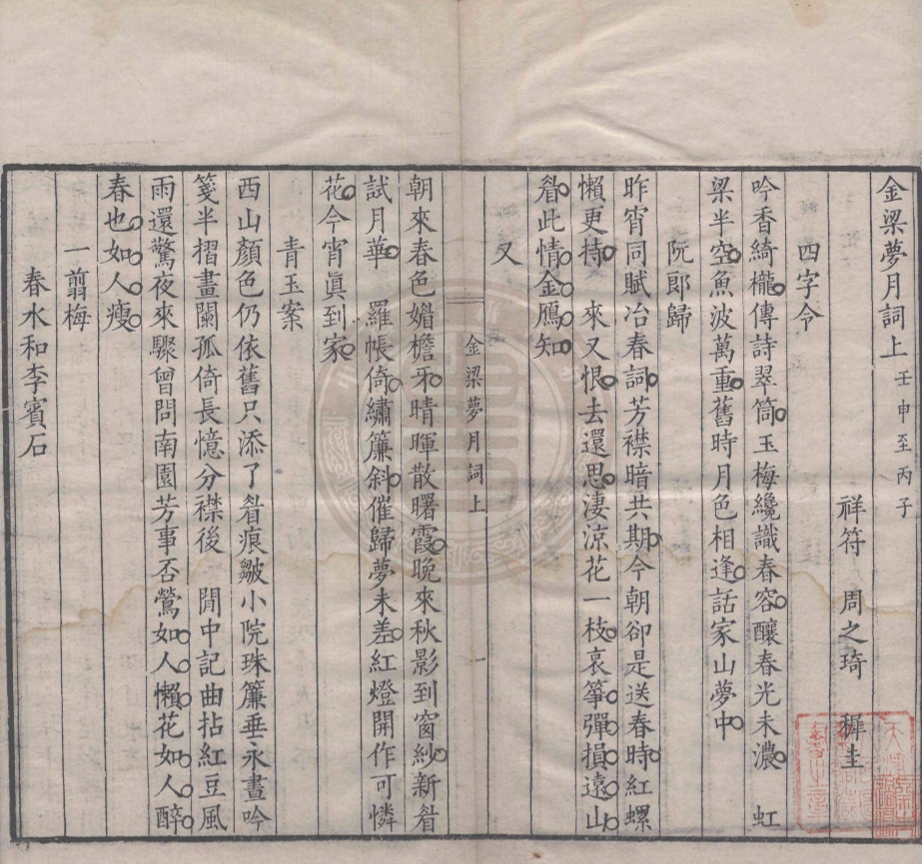 金梁夢月詞上 壬申至丙子
祥符 周之琦 穉圭
四字令
吟香綺櫳傳詩翠筒玉梅纔識春容釀春光未濃 虹
梁半空魚波萬重舊時月色相逢話家山夢中
阮郎歸
昨宵同賦冶春詞芳襟暗共期今朝卻是送春時紅螺
懶更持 來又恨去還思淒涼花一枝哀箏彈損遠山
眉此情金鴈知
又
金梁夢月詞上
一
朝來春色媚檐牙晴暉散曙霞晚來秋影到窗紗新眉
試月華 羅帳倚繡簾斜催歸夢未差紅燈開作可憐
花今宵眞到家
青玉案
西山顏色仍依舊只添了眉痕皺小院珠簾垂永晝吟
箋半摺畫闌孤倚長憶分襟後 閒中記曲拈紅豆風
雨還驚夜來驟曾問南園芳事否鶯如人懶花如人醉
春也如人瘦
一翦梅
春水和李賓石